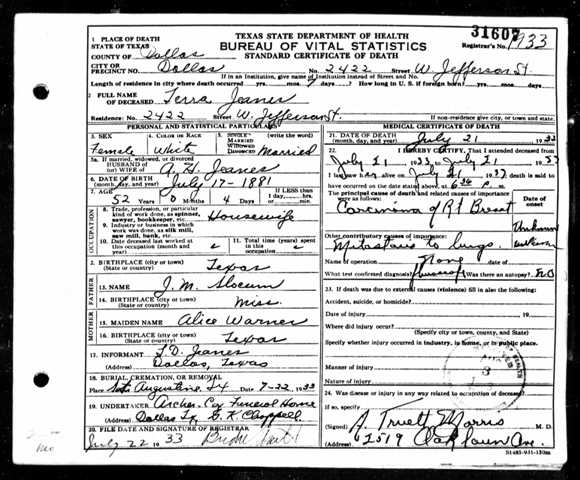 TEXAS STATE DEPARTMENT OF HEALTH
BUREAU OF VITAL STATISTICS
STANDARD CERTIFICATE OF DEATH
31607
Registrar's No. 1933
1 PLACE OF DEATH
STATE OF TEXAS
COUNTY OF Dallas
CITY OR PRECINCT NO. Dallas No. 2422 Street W. Jefferson St
If in an Institution, give name of Institution instead of Street and No.
Length of residence in city where death occurred yrs. mos. days. How long in U. S. if foreign born? yrs. mos. days.
2 FULL NAME OF DECEASED Terra Jeanes
Residence: No. 2422 Street W. Jefferson St. City
If non-resident, give city or town, and state.
PERSONAL AND STATISTICAL PARTICULARS
3. SEX Female
4. COLOR OR RACE White
5. SINGLE MARRIED WIDOWED DIVORCED (write the word) Married
5a. If married, widowed, or divorced HUSBAND OF (or) WIFE OF A. H. Jeanes
6. DATE OF BIRTH (month, day, and year) July 17-1881
7. AGE 52 YEARS 0 MONTHS 4 DAYS If LESS than 1 day, hrs. or min.
OCCUPATION
8. Trade, profession, or particular kind of work done, as spinner, sawyer, bookkeeper, etc. Housewife
9. Industry or business in which work was done, as silk mill, saw mill, bank, etc.
10. Date deceased last worked at this occupation (month and year)
11. Total time (years) spent in this occupation
12. BIRTHPLACE (city or town) (State or country) Texas
FATHER
13. NAME J. M. Slocum
14. BIRTHPLACE (city or town) (State or country) Miss.
MOTHER
15. MAIDEN NAME Alice Warner
16. BIRTHPLACE (city or town) (State or country) Texas
17. INFORMANT Jeanes
(Address) Dallas, Texas
18. BURIAL, CREMATION, OR REMOVAL
Place San Augustine Date 7-22 1933
19. UNDERTAKER Archer Co Funeral Home
(Address) Dallas Tx
20. FILE DATE AND SIGNATURE OF REGISTRAR
July 22 1933
MEDICAL CERTIFICATE OF DEATH
21. DATE OF DEATH July 21 1933
22. I HEREBY CERTIFY, That I attended deceased from
July 21 1933, to July 21 1933
I last saw her alive on July 21 1933, death is said to
have occurred on the date stated above, at 6 30 P. m.
The principal cause of death and related causes of importance were as follows:
Date of onset
Carcinoma of Rt Breast
Unknown
Other contributory causes of importance:
Mitastasis to lungs.
Unknown
Name of operation None date of
What test confirmed diagnosis? Was there an autopsy? No
23. If death was due to external causes (violence) fill in also the following:
Accident, suicide, or homicide?
Date of injury 19
Where did injury occur?
(Specify city or town, county, and State)
Specify whether injury occurred in industry, in home, or in public place.
Manner of injury
Nature of injury
24. Was disease or injury in any way related to occupation of deceased?
If so, specify
(Signed) J. Truett Morris M. D.
(Address) 2519 Oak Lawn Ave.
S1485-931-150m